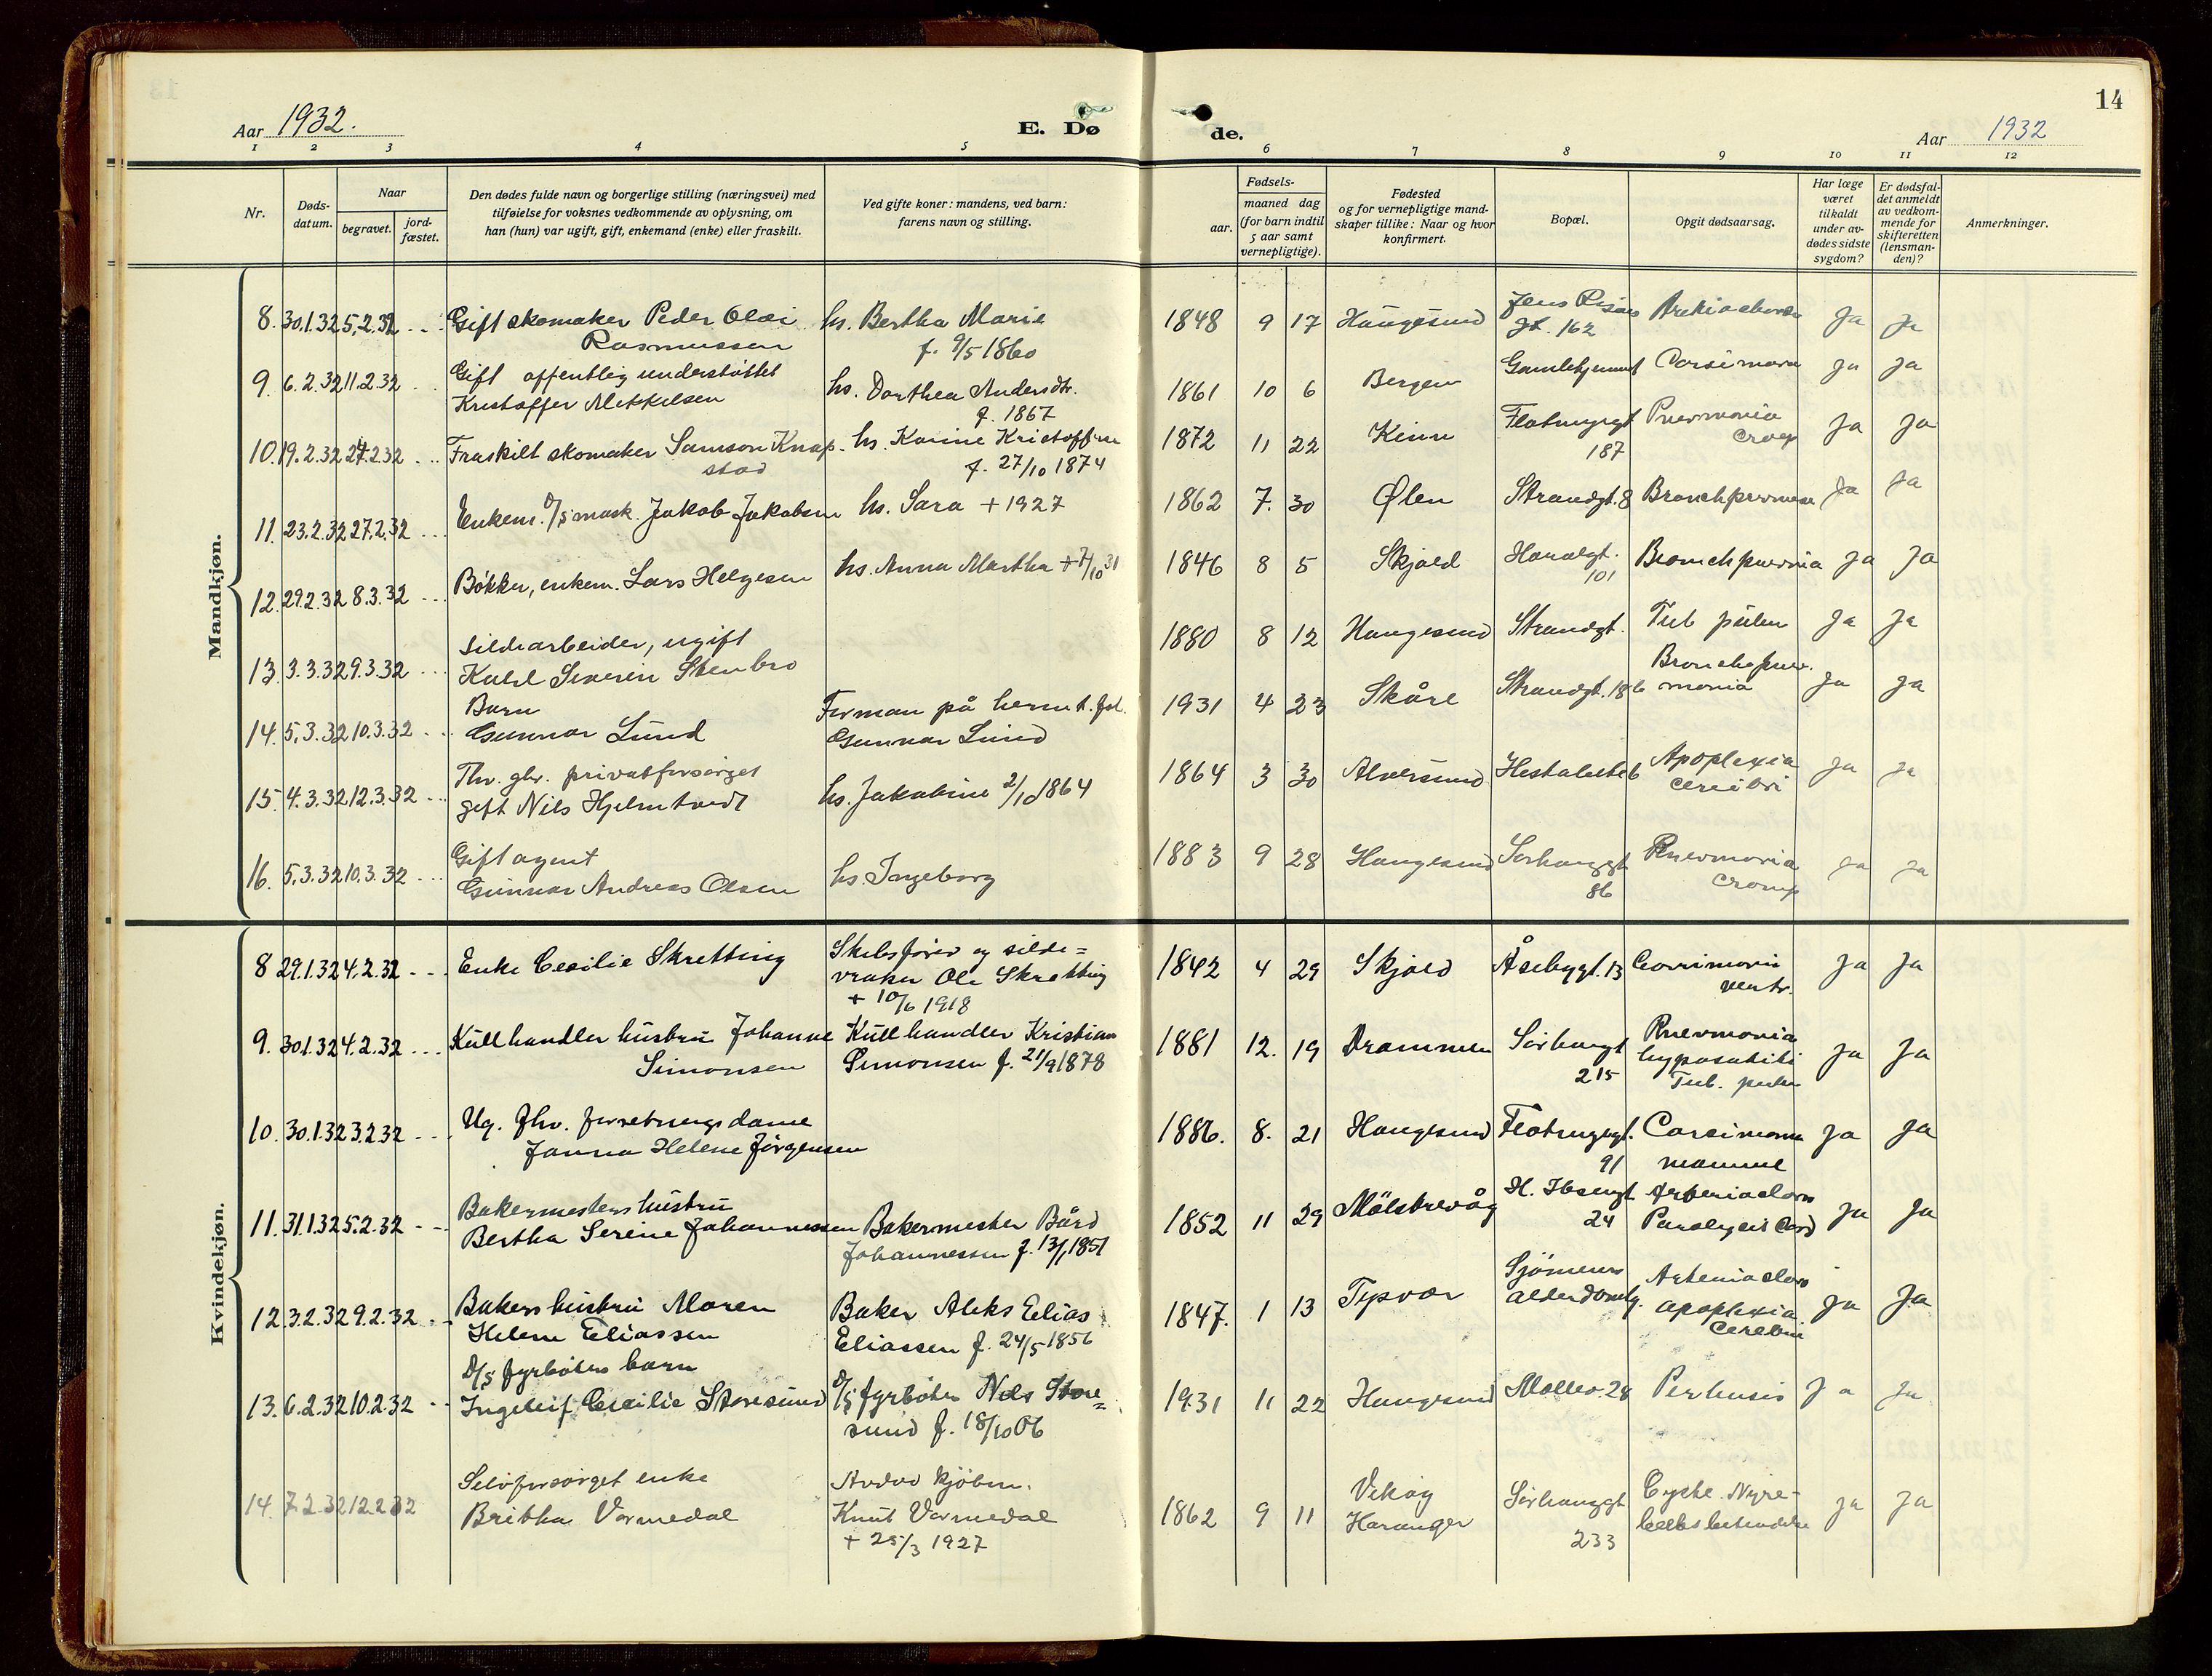 14
Aar 1932.
E. Dø
de.
Aar 1932
1 2 3 4 5 6 7 8 9 10 11 12
Nr.
Døds-
datum.
Naar
begravet.
jord-
fæstet.
Den dødes fulde navn og borgerlige stilling (næringsvei) med
tilføielse for voksnes vedkommende av oplysning, om
han (hun) var ugift, gift, enkemand (enke) eller fraskilt.
Ved gifte koner: mandens, ved barn:
farens navn og stilling.
aar.
Fødsels-
maaned dag
(for barn indtil
5 aar samt
vernepligtige).
Fødested
og for vernepligtige mand-
skaper tillike: Naar og hvor
konfirmert.
Bopæl.
Opgit dødsaarsag.
Har læge
været
tilkaldt
under av-
dødes sidste
sygdom?
Er dødsfal-
det anmeldt
av vedkom-
mende for
skifteretten
(lensman-
den)?
Anmerkninger.
Mandkjøn.
8. 30.1.32 5.2.32 Gift skomaker Peder Olai hs. Bertha Marie 1848 9 17 Haugesund
Rasmussen f. 9/5 1860 gt. 162 Ja Ja
9. 6.2.32 11.2.32 Gift offentlig understøttet hs. Dorthea Andersdtr. 1861 10 6 Bergen Ja Ja
Kristoffer Mikkelsen f. 1867
10. 19.2.32 27.2.32 Fraskilt skomaker Samson Knap- hs. Karine Kristoffine 1872 11 22 Kinn Flotmyrgt Pnevmonia Ja Ja
stad f. 27/10 1874 187 croup
11. 23.2.32 27.2.32 Enkem. D/S mask. Jakob Jakobsen hs. Sara + 1927 1862 7. 30 Ølen Strandgt. 8 Ja Ja
12. 29.2.32 8.3.32 Bøkker, enkem. Lars Helgesen hs. Anna Martha + 7/10 31 1846 8 5 Skjold Haralgt. Ja Ja
101
13. 3.3.32 9.3.32 Sildearbeider, ugift 1880 8 12 Haugesund Strandgt. Tub pulm Ja Ja
Karl Severin Stenbro
14. 5.3.32 10.3.32 Barn Forman på hermt. fab. 1931 4 23 Skåre Strandgt. 186 Ja Ja
Gunnar Lund Gunnar Lund monia
15. 4.3.32 12.3.32 Thv. ghv. privatforsørget hs. Jakobine 2/10 1864 1864 3 30 Alversund Apoplexia Ja Ja
gift Nils Hjelmtvedt cerebri
16. 5.3.32 10.3.32 Gift agent hs. Ingeborg 1883 9 28 Haugesund Sørhauggt Pnevmonia Ja Ja
Gunnar Andreas Olsen 86 croup
Kvindekjøn.
8 29.1.32 4.2.32 Enke Cecilie Skretting Skibsfører og silde= 1842 4 29 Skjold Åsebygt. 13 Ja Ja
vraker Ole Skretting ventr.
+ 10/6 1918
9. 30.1.32 4.2.32 Kullhandler hustru Johanne Kullhandler Kristian 1881 12. 19 Drammen Sørhaugt Pnevmonia Ja Ja
Simonsen Simonsen f. 21/9 1878 215 Tub. pulm
10. 30.1.32 3.2.32 Ug. fhv. forretningsdame 1886. 8. 21 Haugesund Flotmyrgt. Ja Ja
Janna Helene Jørgensen 91 mammae
11. 31.1.32 5.2.32 Bakermesters hustru Bakermester Bård 1852 11 29 Mølstrevåg H. Ibsengt Ja Ja
Bertha Serine Johannessen Johannessen f. 13/1 1851 24 Paralysis Cord
12. 3.2.32 9.2.32 Bakers hustru Maren Baker Aleks Eelias 1847. 1 13 Tysvær Ja Ja
Helene Eliassen Eliassen f. 24/5 1856 apoplexia
13. 6.2.32 10.2.32 D/S fyrbøters barn D/S fyrbøter Nils Store= 1931 11 22 Haugesund Møllev. 28 Pertussis Ja Ja
Ingeleif Cecilie Storesund sund f. 18/10 06
14. 7.2.32 12.2.32 Selvforsørget enke 1862 9 11 Vikøy Sørhauggt Cyste. Nyre- Ja Ja
Britha Vormedal Knut Vormedal Haranger 233
+ 25/3 1927